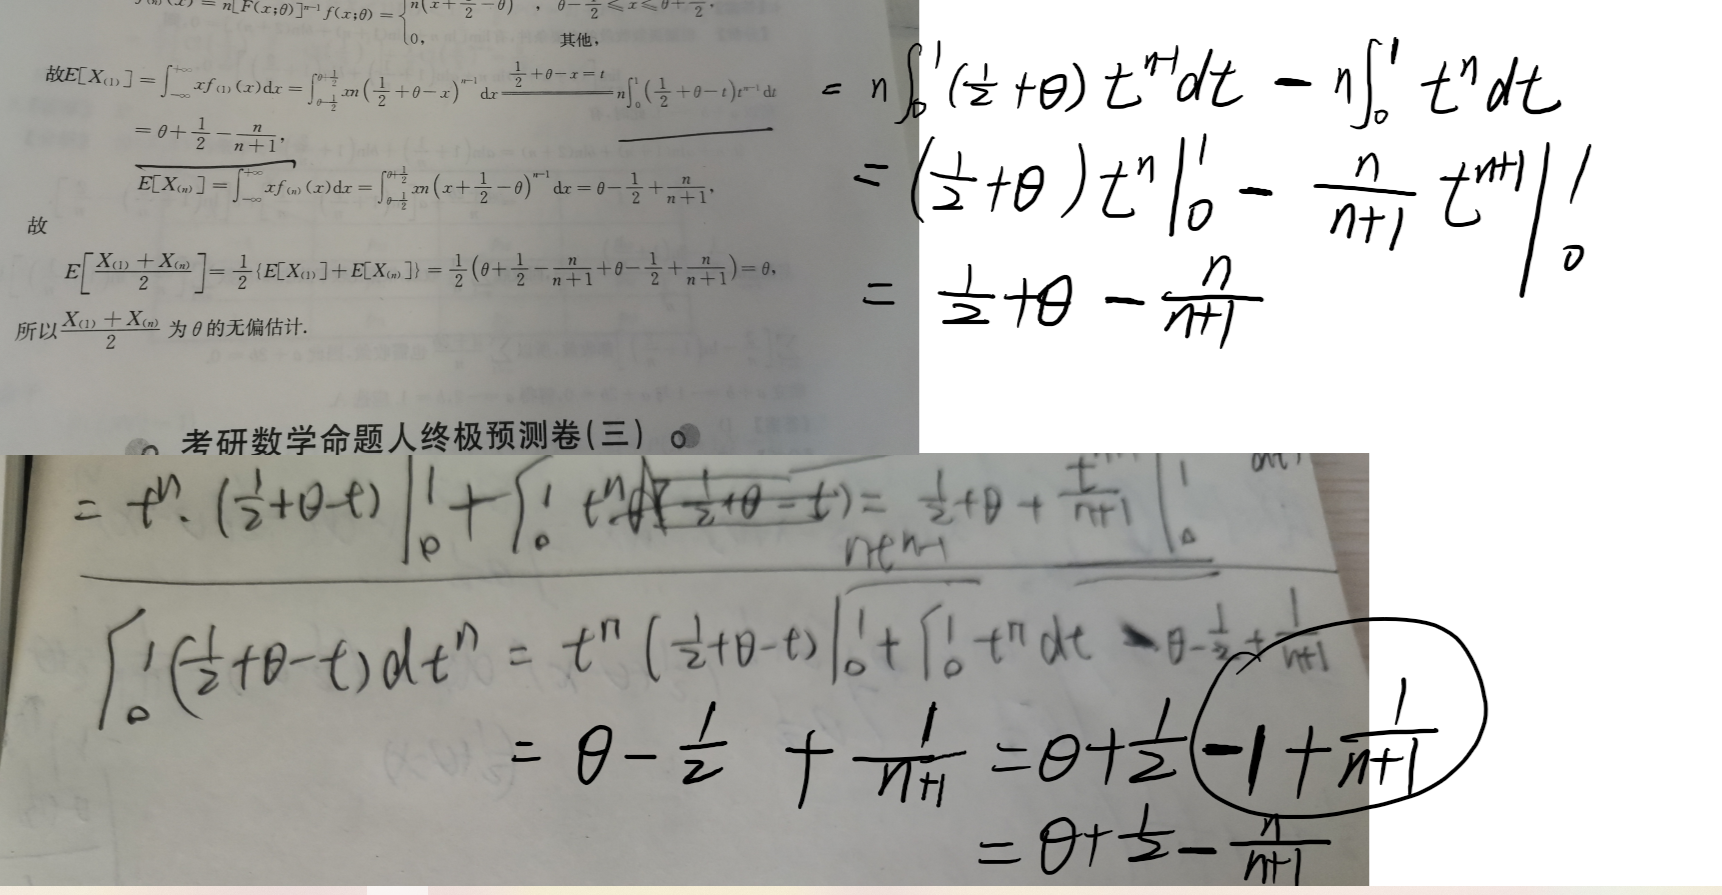 f₍ₙ₎(x) = n[F(x;θ)]ⁿ⁻¹f(x;θ) = { n(x+1/2-θ)ⁿ⁻¹, θ-1/2≤x≤θ+1/2,
0, 其他,
故E[X₍₁₎]=∫_{-∞}^{+∞} xf₍₁₎(x)dx=∫_{θ-1/2}^{θ+1/2} xn(1/2+θ-x)ⁿ⁻¹dx ==(1/2+θ-x=t)== n∫_0^1(1/2+θ-t)tⁿ⁻¹dt
=θ+1/2-n/(n+1),
E[X₍ₙ₎]=∫_{-∞}^{+∞} xf₍ₙ₎(x)dx=∫_{θ-1/2}^{θ+1/2} xn(x+1/2-θ)ⁿ⁻¹dx=θ-1/2+n/(n+1),
故
E[(X₍₁₎+X₍ₙ₎)/2]=1/2{E[X₍₁₎]+E[X₍ₙ₎]}=1/2(θ+1/2-n/(n+1)+θ-1/2+n/(n+1))=θ,
所以(X₍₁₎+X₍ₙ₎)/2为θ的无偏估计.
考研数学命题人终极预测卷(三)
= n∫_0^1(1/2+θ)tⁿ⁻¹dt - n∫_0^1 tⁿdt
= (1/2+θ)tⁿ|_0^1 - n/(n+1) tⁿ⁺¹|_0^1
= 1/2+θ - n/(n+1)
= tⁿ·(1/2+θ-t)|_0^1 + ∫_0^1 tⁿd(1/2+θ-t) = 1/2+θ+tⁿ⁺¹/(n+1)|_0^1
ntⁿ⁻¹
∫_0^1(1/2+θ-t)dtⁿ = tⁿ(1/2+θ-t)|_0^1+∫_0^1 tⁿdt θ-1/2+1/(n+1)
= θ-1/2+1/(n+1) = θ+1/2-1+1/(n+1)
= θ+1/2-n/(n+1)